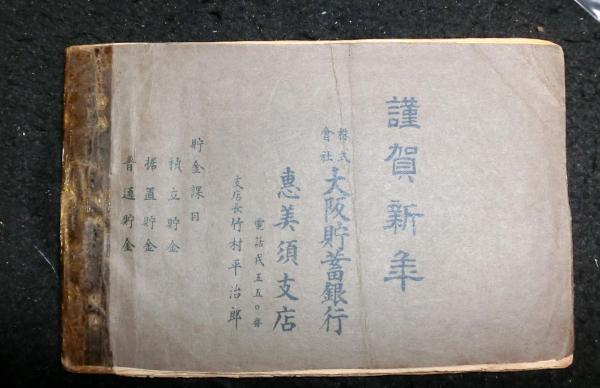 謹賀新年
株式會社
大阪貯蓄銀行
惠美須支店
電話戎五五〇番
支店長 竹村平治郎
貯金課目
積立貯金
据置貯金
普通貯金